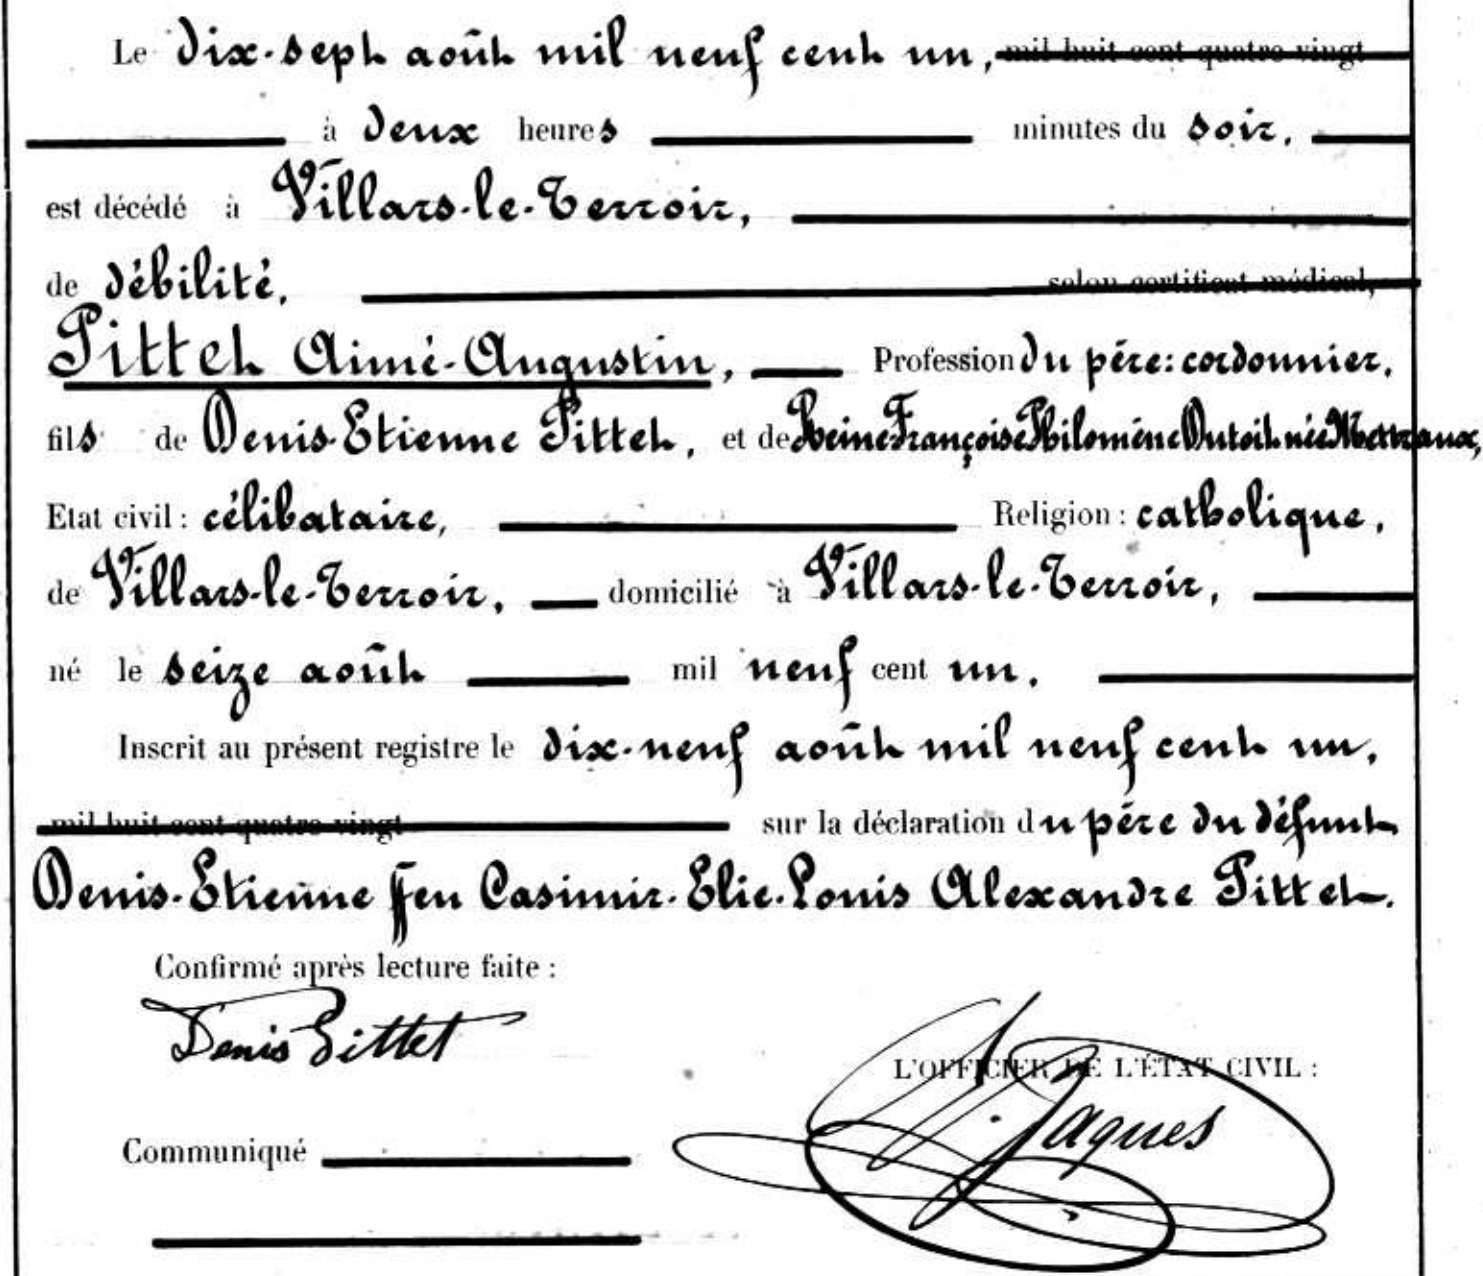 Le dix-sept août mil neuf cent un, mil huit cent quatre vingt
à deux heures minutes du soir.
est décédé à Villars-le-Terroir,
de débilité, selon certificat médical,
Pittet Aimé-Augustin, Profession du père: cordonnier,
fils de Denis-Etienne Pittet, et de Reine Françoise Philomène Dutoit née Mettraux,
Etat civil: célibataire, Religion: catholique,
de Villars-le-Terroir, domicilié à Villars-le-Terroir,
né le seize août mil neuf cent un.
Inscrit au présent registre le dix-neuf août mil neuf cent un,
mil huit cent quatre vingt sur la déclaration du père du défunt
Denis-Etienne ffeu Casimir-Elie-Louis Alexandre Pittet.
Confirmé après lecture faite:
Denis Pittet
L'OFFICIER DE L'ÉTAT CIVIL:
Jaques
Communiqué